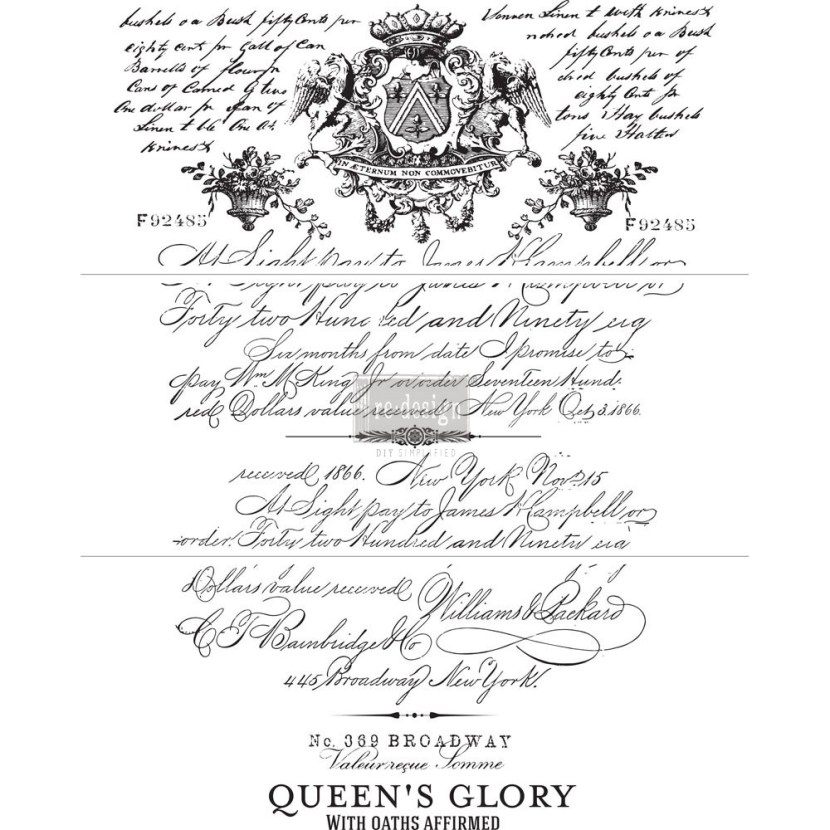 bushels oa Bush fifty Cents per
eighty cent pr Gall of Can
Barrells of flour pr
Cans of Corned
One dollar pr
Linen t ble One At
Knives t
Linen t with Knives t
bushels oa Bush
fifty Cents per of
dred bushels of
eighty Cent for
tons Hay bushels
five Hatter
IN ÆTERNUM NON COMMOVEBITUR
F92485
F92485
At Sight pay to James H Campbell or
At Sight pay to James H Campbell or
Forty two Hundred and Ninety eig
Six months from date I promise to
pay Wm M King Jr or order Seventeen Hund.
red Dollars value received New York Oct 3. 1866.
re·design
DIY SIMPLIFIED
received 1866. New York Nov 15
At Sight pay to James H Campbell or
order. Forty two Hundred and Ninety eig
Dollars value received
Williams & Packard
C T Bainbridge & Co
445 Broadway New York.
No. 369 BROADWAY
Valeur reçue Somme
QUEEN'S GLORY
WITH OATHS AFFIRMED